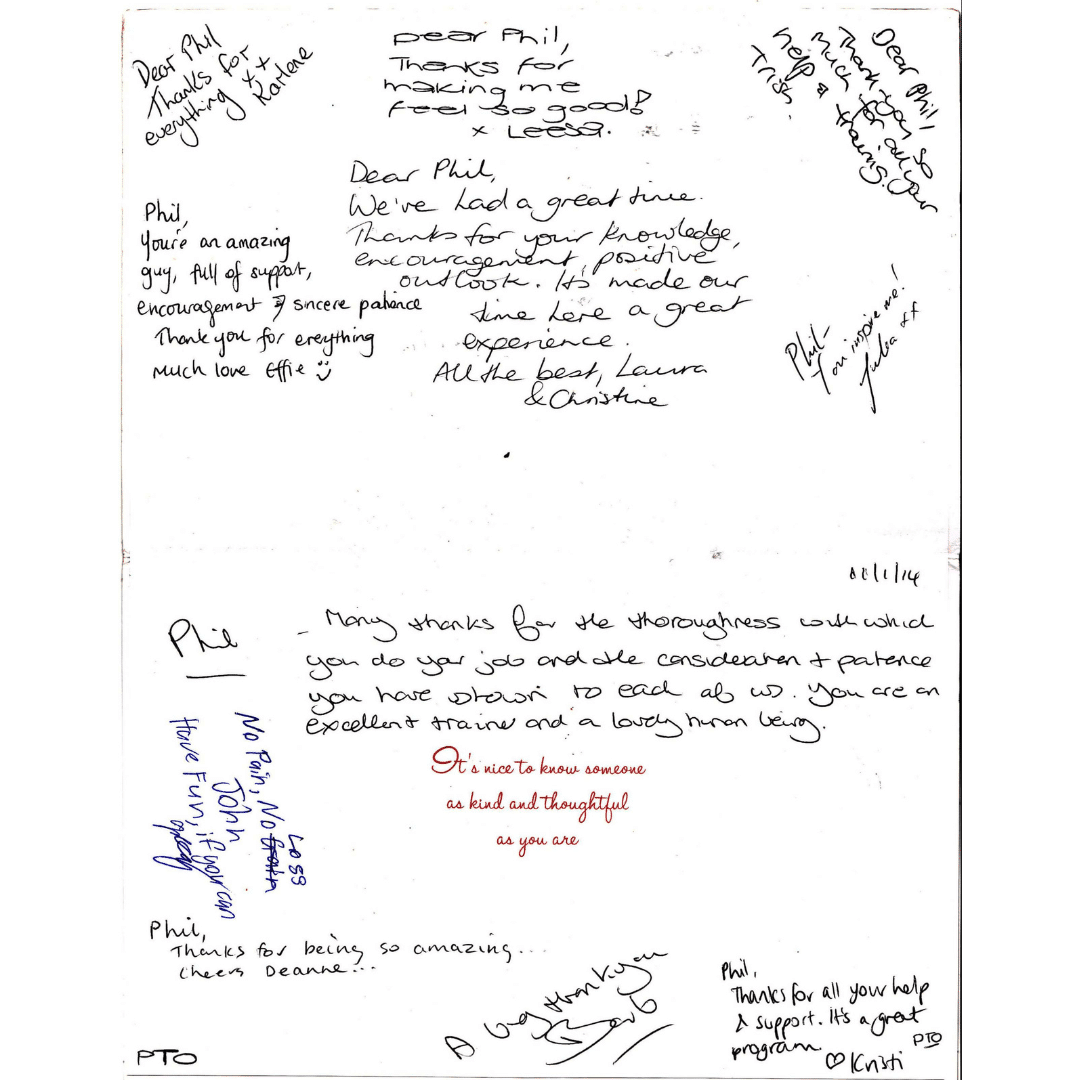 Dear Phil
Thanks for
everything xx
Karlene
Dear Phil,
Thanks for
making me
feel so good!
x Leesa.
Dear Phil,
Thank you so
much for all your
help & training.
Trish.
Dear Phil,
We've had a great time.
Thanks for your knowledge,
encouragement, positive
outlook. It's made our
time here a great
experience.
All the best, Laura
& Christine
Phil,
You're an amazing
guy, full of support,
encouragement & sincere patience
Thank you for ereything
Much love Effie
Phil-
You inspire me!
Julea xx
/1/14
Phil
- Many thanks for the thoroughness with which
you do your job and the consideration + patience
you have shown to each of us. You are an
excellent trainer and a lovely human being.
It's nice to know someone
as kind and thoughtful
as you are
No Pain, No Loss
John
Have Fun, if you can
Phil,
Thanks for being so amazing...
Cheers Deanne...
A big thankyou
Barb
Phil,
Thanks for all your help
& support. It's a great
program.
♡ Kristi
PTO
PTO